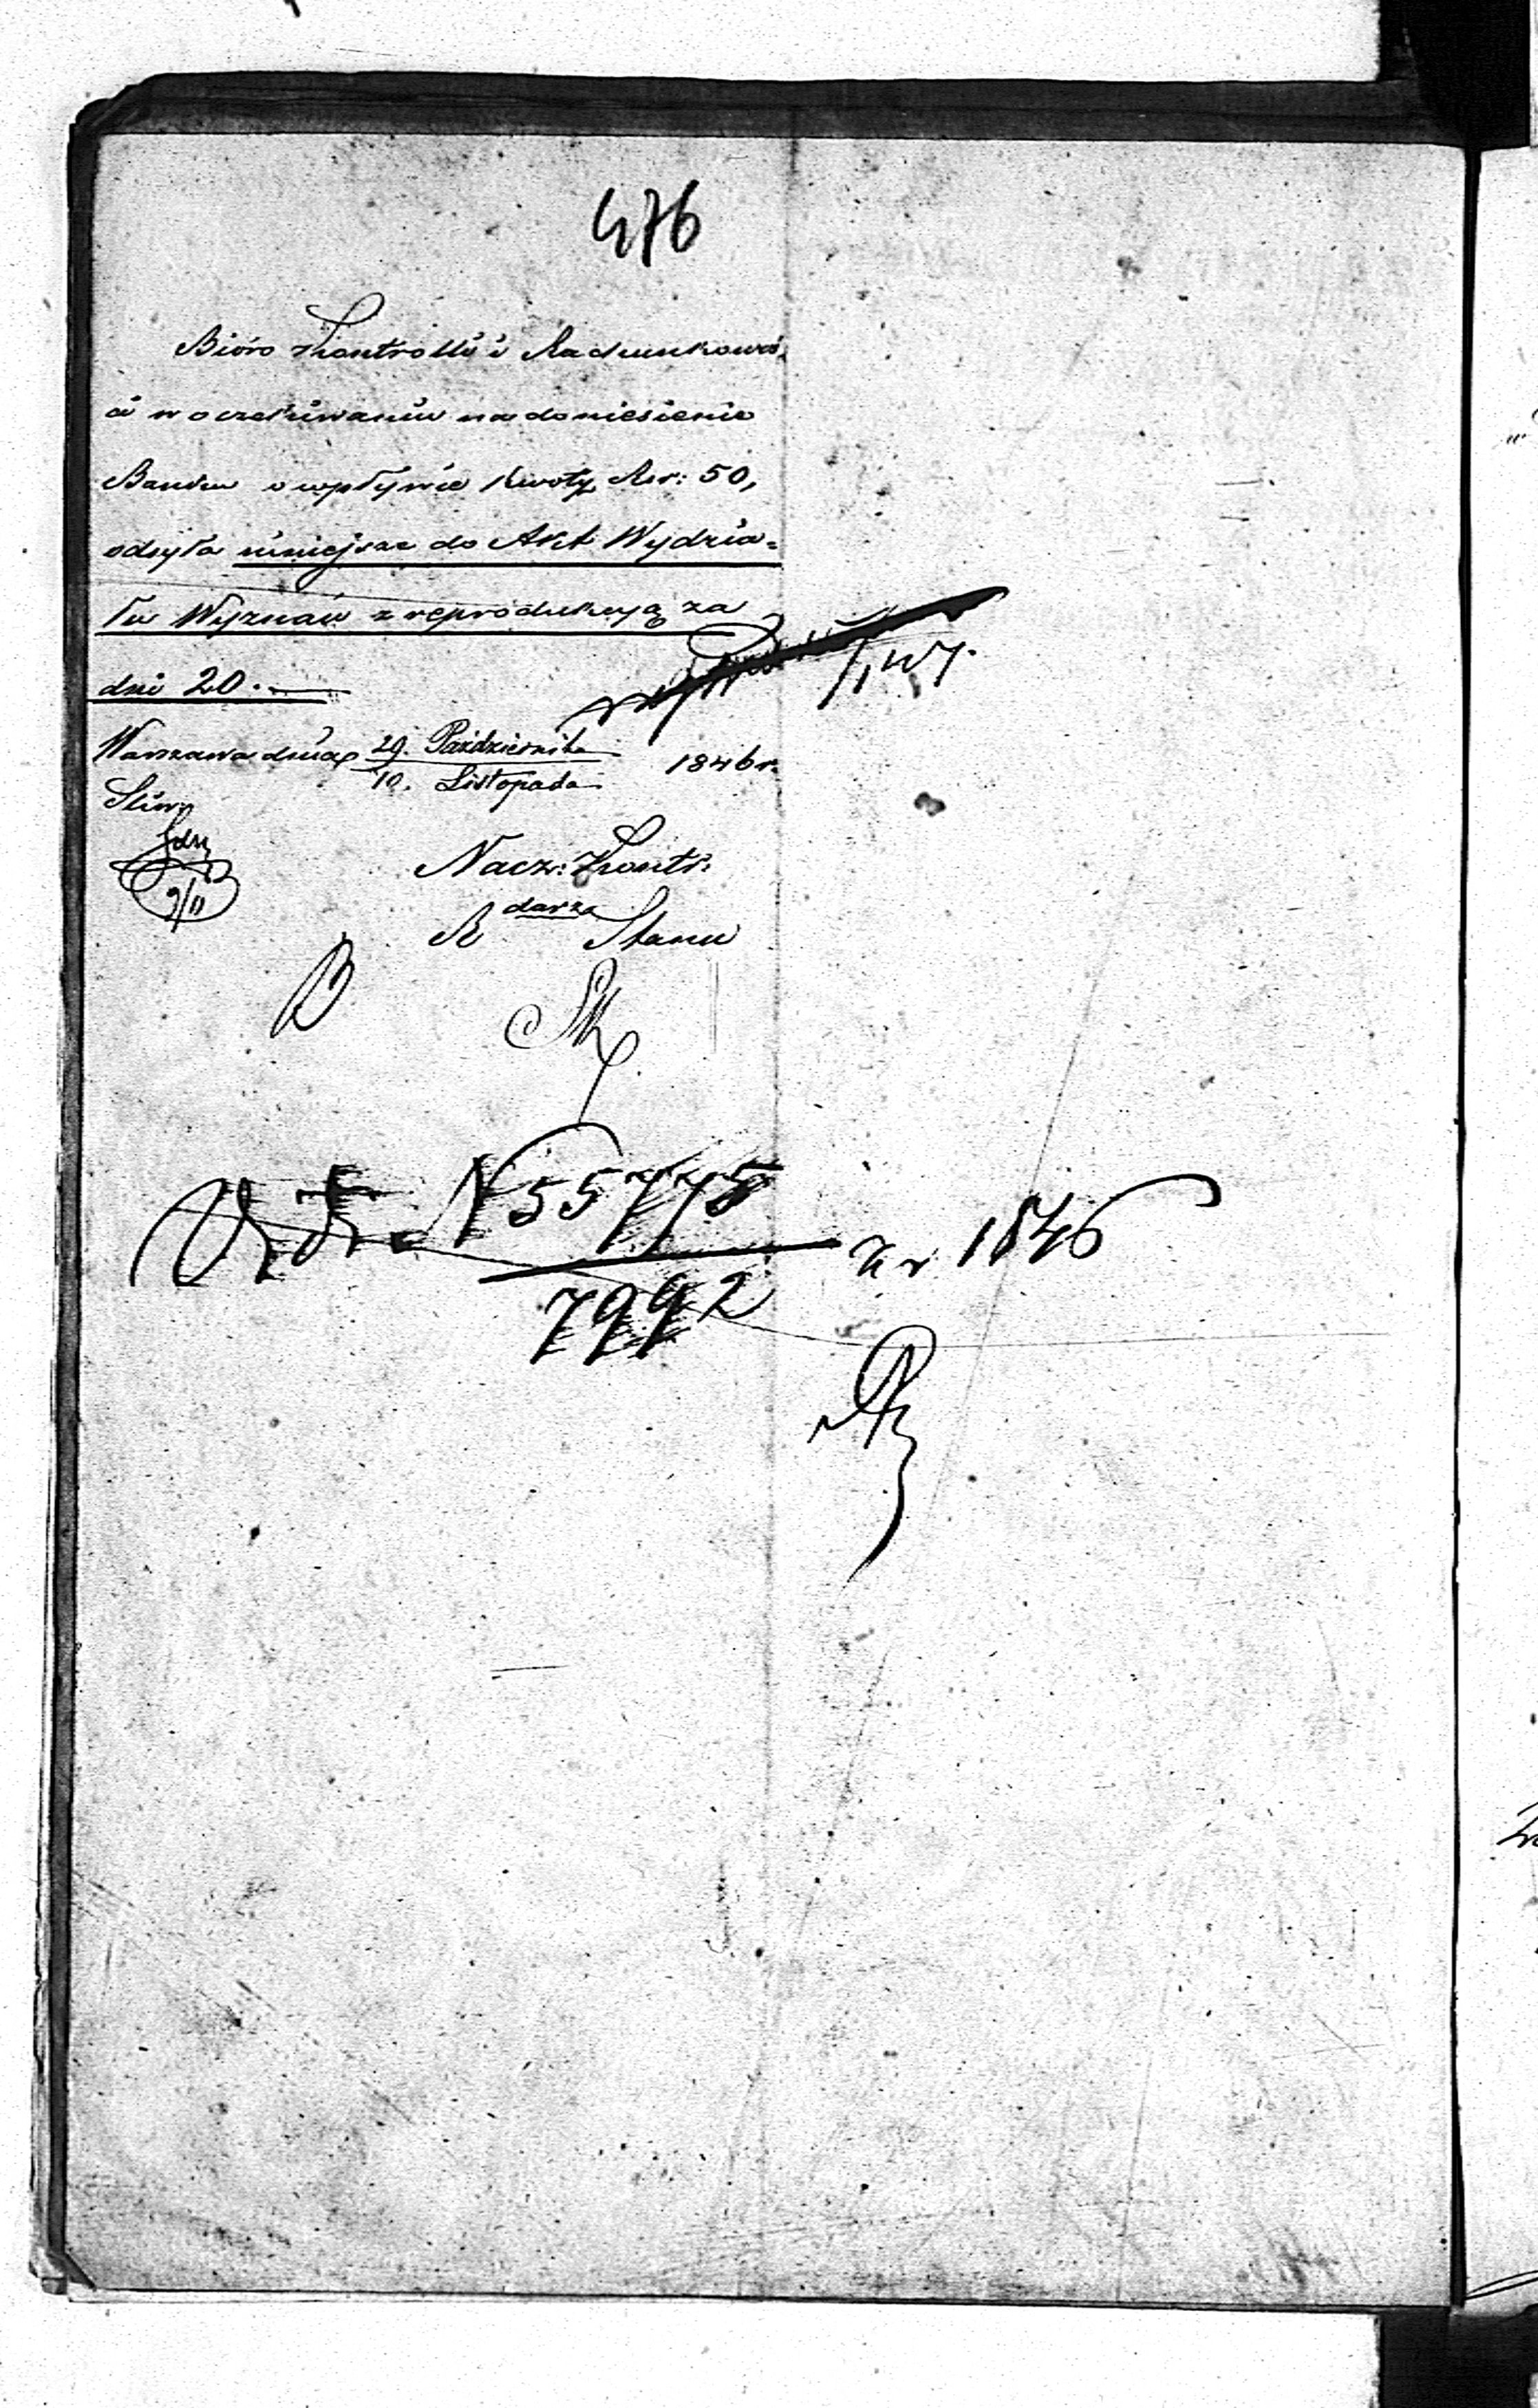 476
Bióro Kontrolli i Rachunkowoś,
ci w oczekiwaniu na doniesienie
Banku o wpływie kwoty Rsr: 50,
odsyła niniejsze do Akt Wydzia=
łu Wyznań z reprodukcyą za
dni 20.
Warszawa dnia 29. Października
10. Listopada 1846 r.
Nacz: Kontr:
R darza Stanu
9/11
Vide N 55775
7992 z r 1846